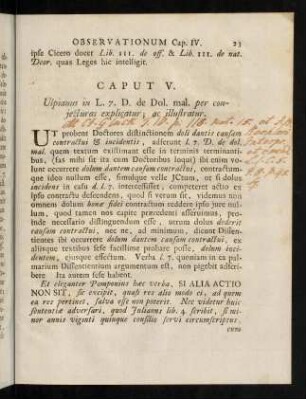 OBSERVATIONUM Cap. IV. 23
ipse Cicero docet Lib. III. de off. & Lib. III. de nat.
Deor. quas Leges hic intelligit.
CAPUT V.
Ulpianus in L. 7. D. de Dol. mal. per con-
jecturas explicatur, ac illustratur.
UT probent Doctores distinctionem doli dantis causam
contractui & incidentis, adserunt l. 7. D. de dol.
mal. quem textum existimant esse in terminis terminanti-
bus, (fas mihi sit ita cum Doctoribus loqui) ibi enim vo-
lunt occurrere dolum dantem causam contractui, contractum-
que ideo nullum esse, simulque velle JCtum, ut si dolus
incidens in casu d. l. 7. intercessisset, competeret actio ex
ipso contractu descendens, quod si verum sit, videmus non
esse dolum omnem bonæ fidei contractus reddere ipso jure nul-
los, quod tamen nos capite præcedenti asseruimus, pro-
inde necessario distinguendum esse, utrum dolus dederit
causam contractui, nec ne, ad minimum, dicunt Dissen-
tientes ibi occurrere dolum dantem causam contractui, ex
aliisque textibus sese facillime probare posse, dolum inci-
dentem, ejusque effectum. Verba l. 7. quoniam in ea pal-
marium Dissentientium argumentum est, non pigebit adscri-
bere Ita autem sese habent.
Et eleganter Pomponius hæc verba, SI ALIA ACTIO
NON SIT, sic excipit, quasi res alio modo ei, ad quem
ea res pertinet, salva esse non poterit. Nec videtur huic
sententiæ adversari, quod Julianus lib. 4. scribit, si mi-
nor annis viginti quinque consilio servi circumscriptus,
eum